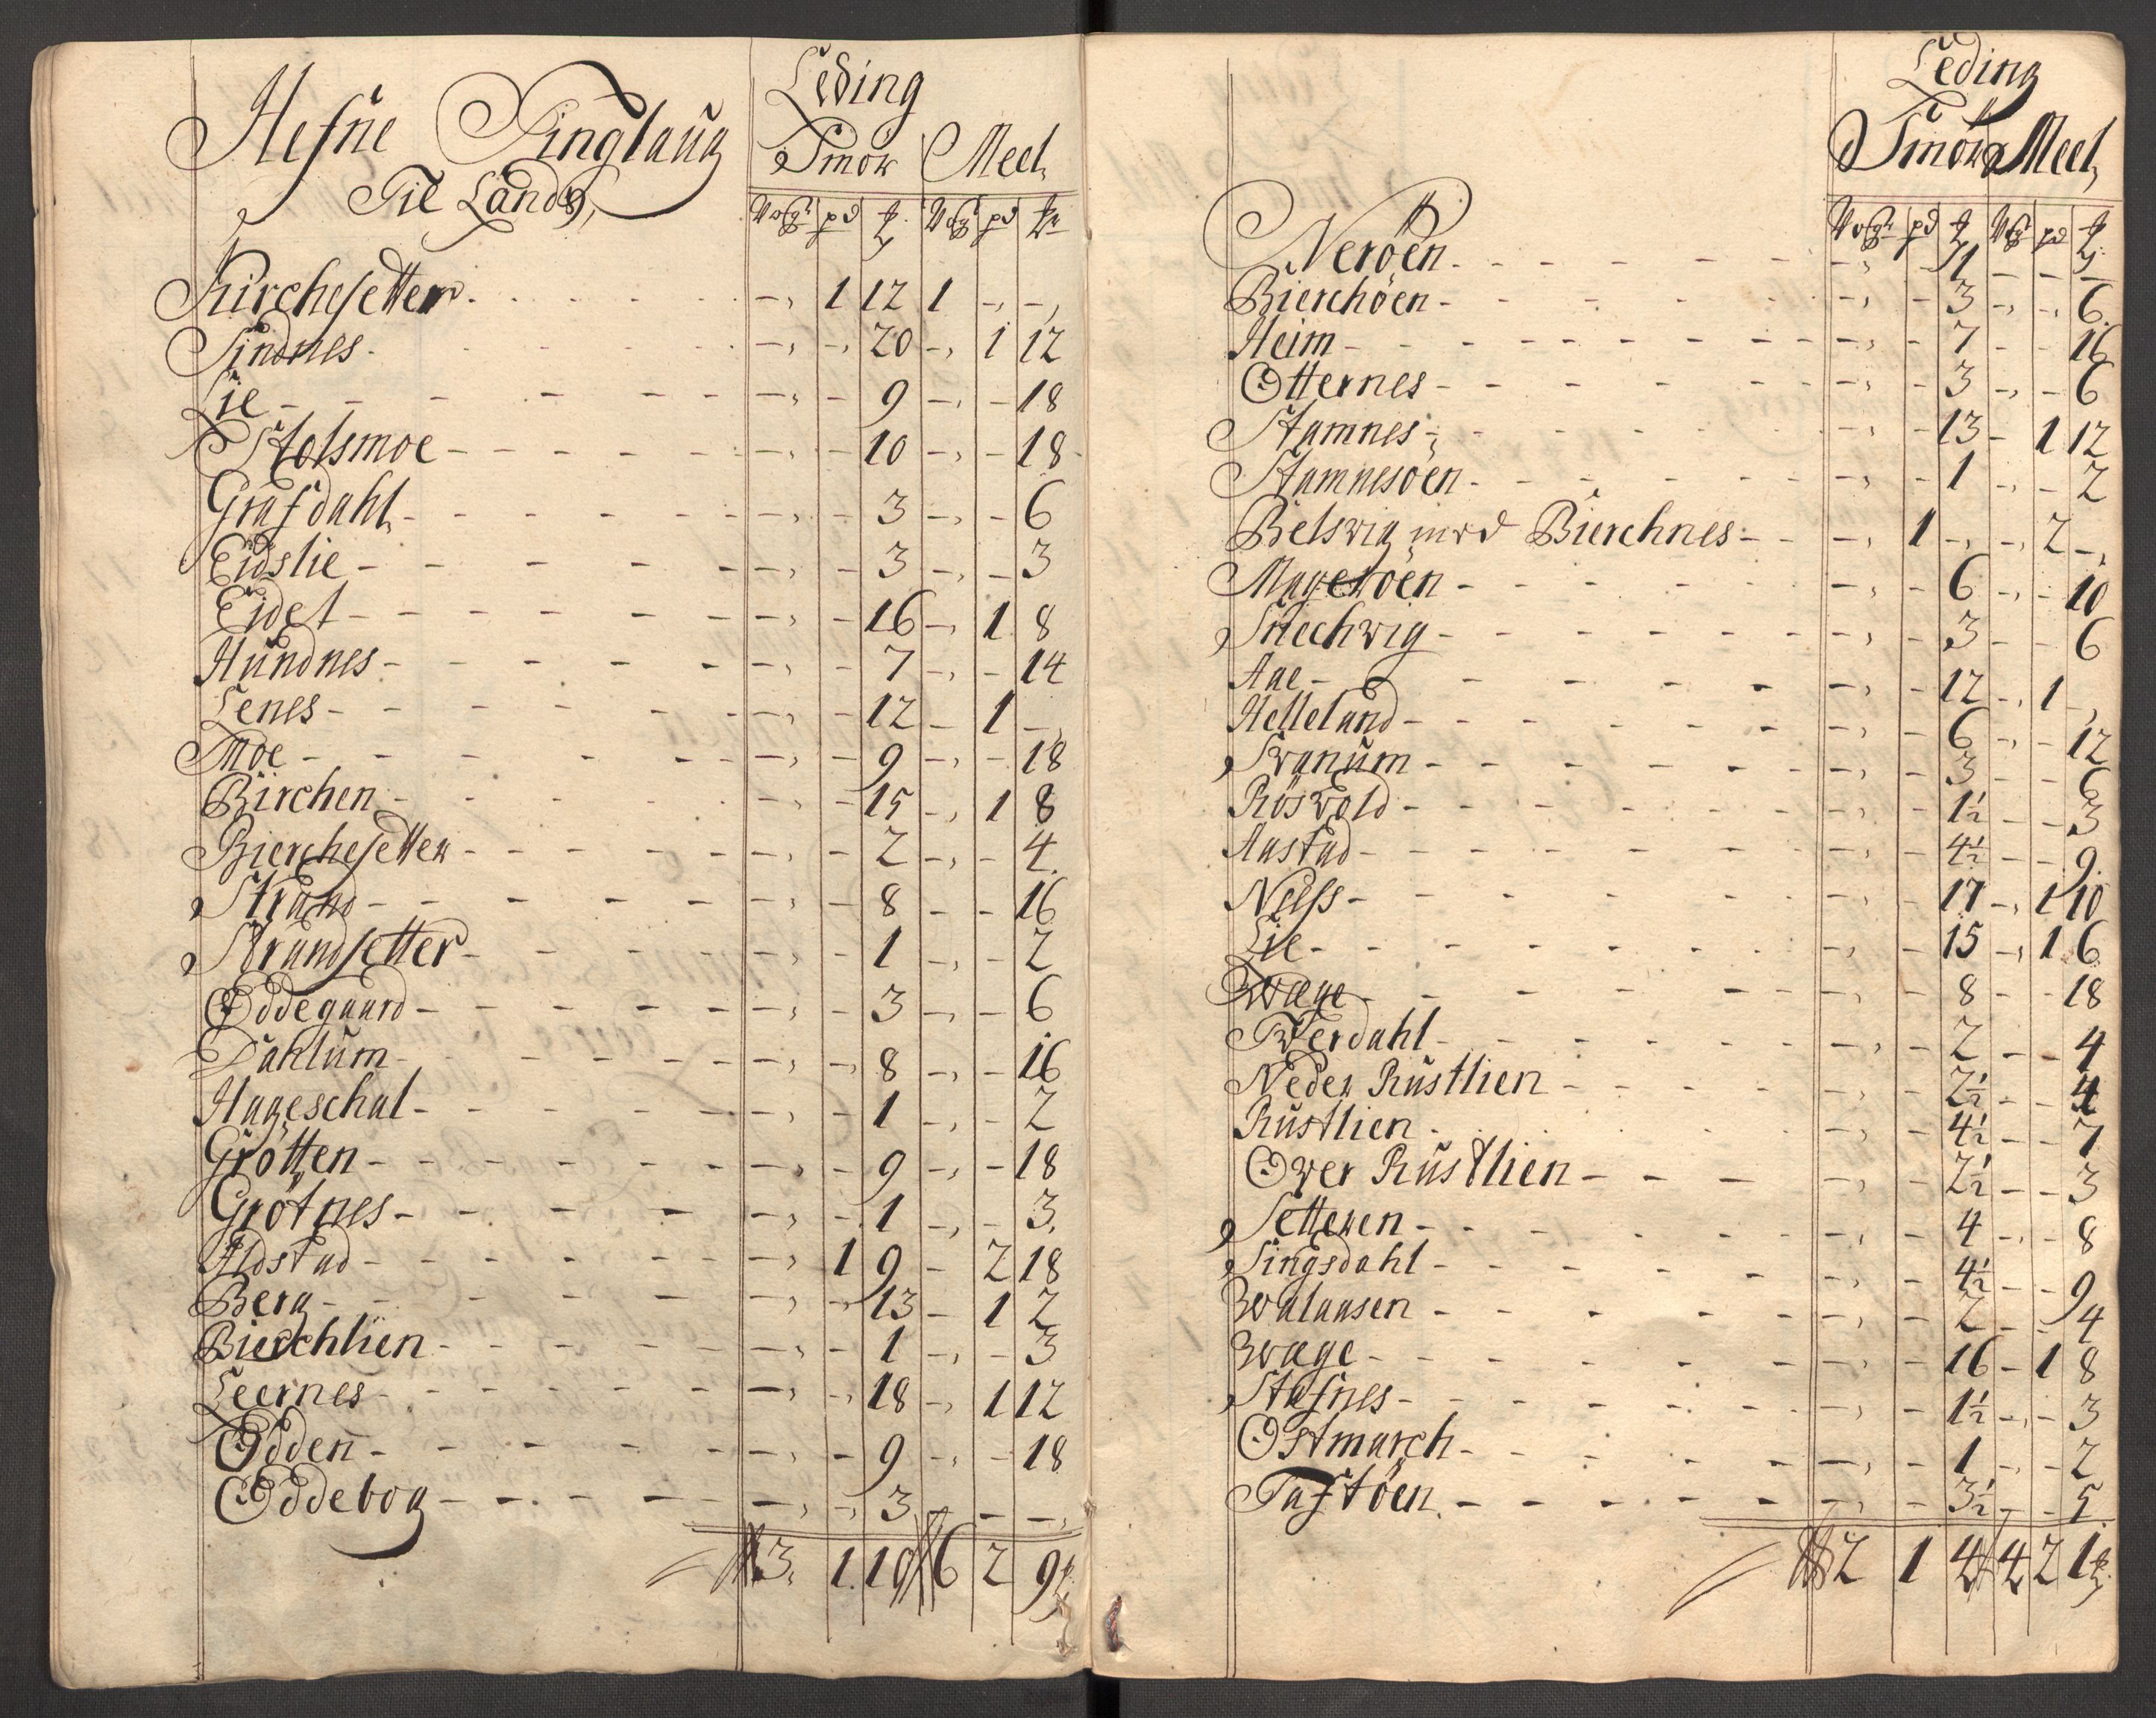 Hefne Tinglaug
Til Lands,
Leding
Smör Meel,
Wog pd ℔ Wog pd ℔
Kirchesetter - 1 12 1 - -
Sindnes - - 20 - 1 12
Lie - - 9 - - 18
Stolsmoe - - 10 - - 18
Grafdahl - - 3 - - 6
Eidslie - - 3 - - 3
Eidet - - 16 - 1 8
Hundnes - - 7 - - 14
Lenes - - 12 - 1 -
Moe - - 9 - - 18
Birchen - - 15 - 1 8
Bierchesetter - - 2 - - 4
Strand - - 8 - - 16
Strandsetter - - 1 - - 2
Oddegaard - - 3 - - 6
Dahlum - - 8 - - 16
Hageschal - - 1 - - 2
Grötten - - 9 - - 18
Grötnes - - 1 - - 3
Aldstad - 1 9 - 2 18
Berg - - 13 - 1 2
Bierchlien - - 1 - - 3
Leernes - - 18 - 1 12
Odden - - 9 - - 18
Oddebog - - 3 - - -
3 1 19 6 2 9 ℔
Leding
Smör Meel,
Wog pd ℔ Wog pd ℔
Neröen - - 1 - - -
Bierchöen - - 3 - - 6
Heim - - 7 - - 16
Otternes - - 3 - - 6
Stamnes - - 13 - 1 12
Stamnesöen - - 1 - - 2
Belswig med Bierchnes - 1 - - 2 -
Mageröen - - 6 - - 10
Snechwig - - 3 - - 6
Aae - - 12 - 1 -
Helleland - - 6 - - 12
Svanum - - 3 - - 6
Rösvold - - 1½ - - 3
Aastad - - 4½ - - 9
Nelss - - 17 - 1 10
Lie - - 15 - 1 6
Wage - - 8 - - 18
Twerdahl - - 2 - - 4
Neder Rustlien - - 2½ - - 4
Rustlien - - 4½ - - 7
Ower Rustlien - - 2½ - - 3
Setteren - - 4 - - 8
Singsdahl - - 4½ - - 9
Walaasen - - 2 - - 4
Wage - - 16 - 1 8
Stafnes - - 1½ - - 3
Ostmarch - - 1 - - 2
Taftöen - - 3½ - - 5
2 1 4 4 2 1 ℔